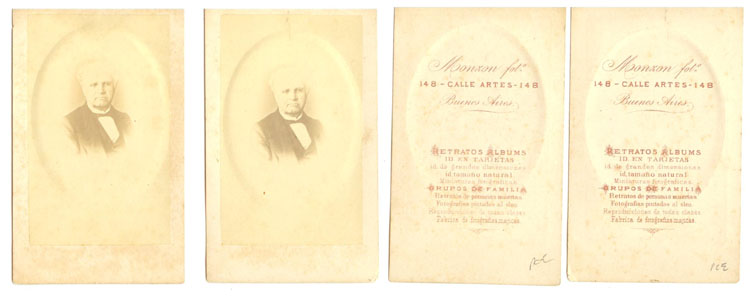 Monzon fot.º
148 - CALLE ARTES - 148
Buenos Aires
RETRATOS ALBUMS
ID EN TARJETAS
id. de grandes dimensiones
id. tamaño natural
Miniaturas fotograficas
GRUPOS DE FAMILIA
Retratos de personas muertas
Fotografias pintadas al oleo
Reproducciones de todas clases
Fabrica de
Monzon fot.º
148 - CALLE ARTES - 148
Buenos Aires
RETRATOS ALBUMS
ID EN TARJETAS
id. de grandes dimensiones
id. tamaño natural
Miniaturas fotograficas
GRUPOS DE FAMILIA
Retratos de personas muertas
Fotografias pintadas al oleo
Reproducciones de todas clases
Fabrica de